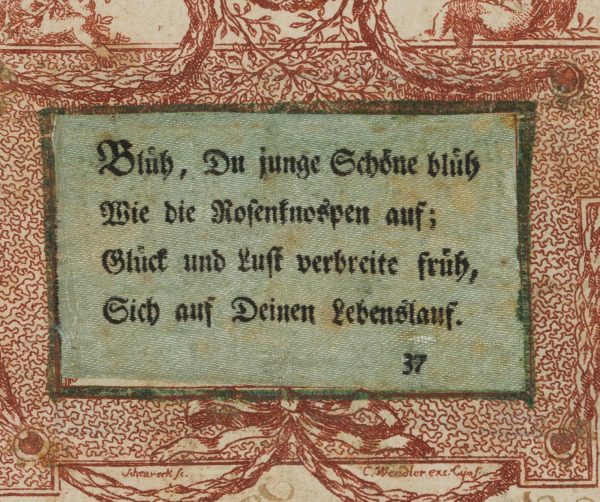 Blüh, Du junge Schöne blüh
Wie die Rosenknospen auf;
Glück und Lust verbreite früh,
Sich auf Deinen Lebenslauf.
37
Scheureck sc.
C. Wendler exc. Lips.